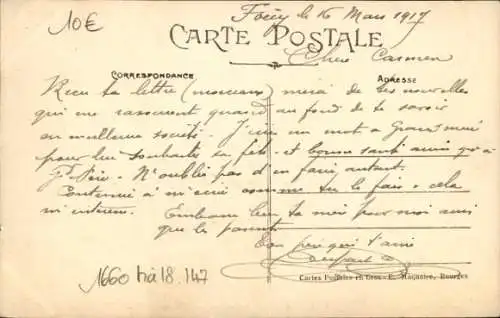 10€
Foëcy le 16 Mars 1917
CARTE POSTALE
Chère Carmen
CORRESPONDANCE
ADRESSE
Reçu ta lettre (morceaux) merci de tes nouvelles
qui me rassurent quand au fond de te savoir
en meilleure société. J'écris un mot a Grand'mère
pour lui souhaiter sa fête et bonne santé ainsi qu'à
Gd Père. N'oublie pas d'en faire autant.
Continue à m'écrire comme tu le fais, cela
m'intéresse. Embrasse bien ta mère pour moi ainsi
que les parents
Ton père qui t'aime
Cartes Postales en Gros - E. Maquaire, Bourges
1660 h a 18.147